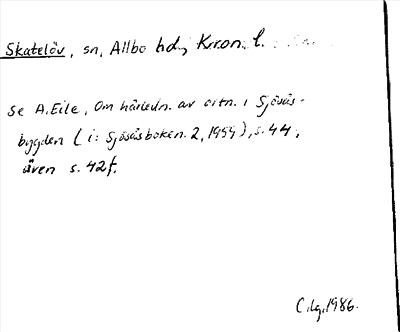 Skatelöv, sn, Allbo hd, Kron. l.
Se A. Eile, Om härledn. av ortn. i Sjösås-
bygden (i: Sjösåsboken. 2, 1954), s. 44,
även s. 42f.
C. lg. 1986.